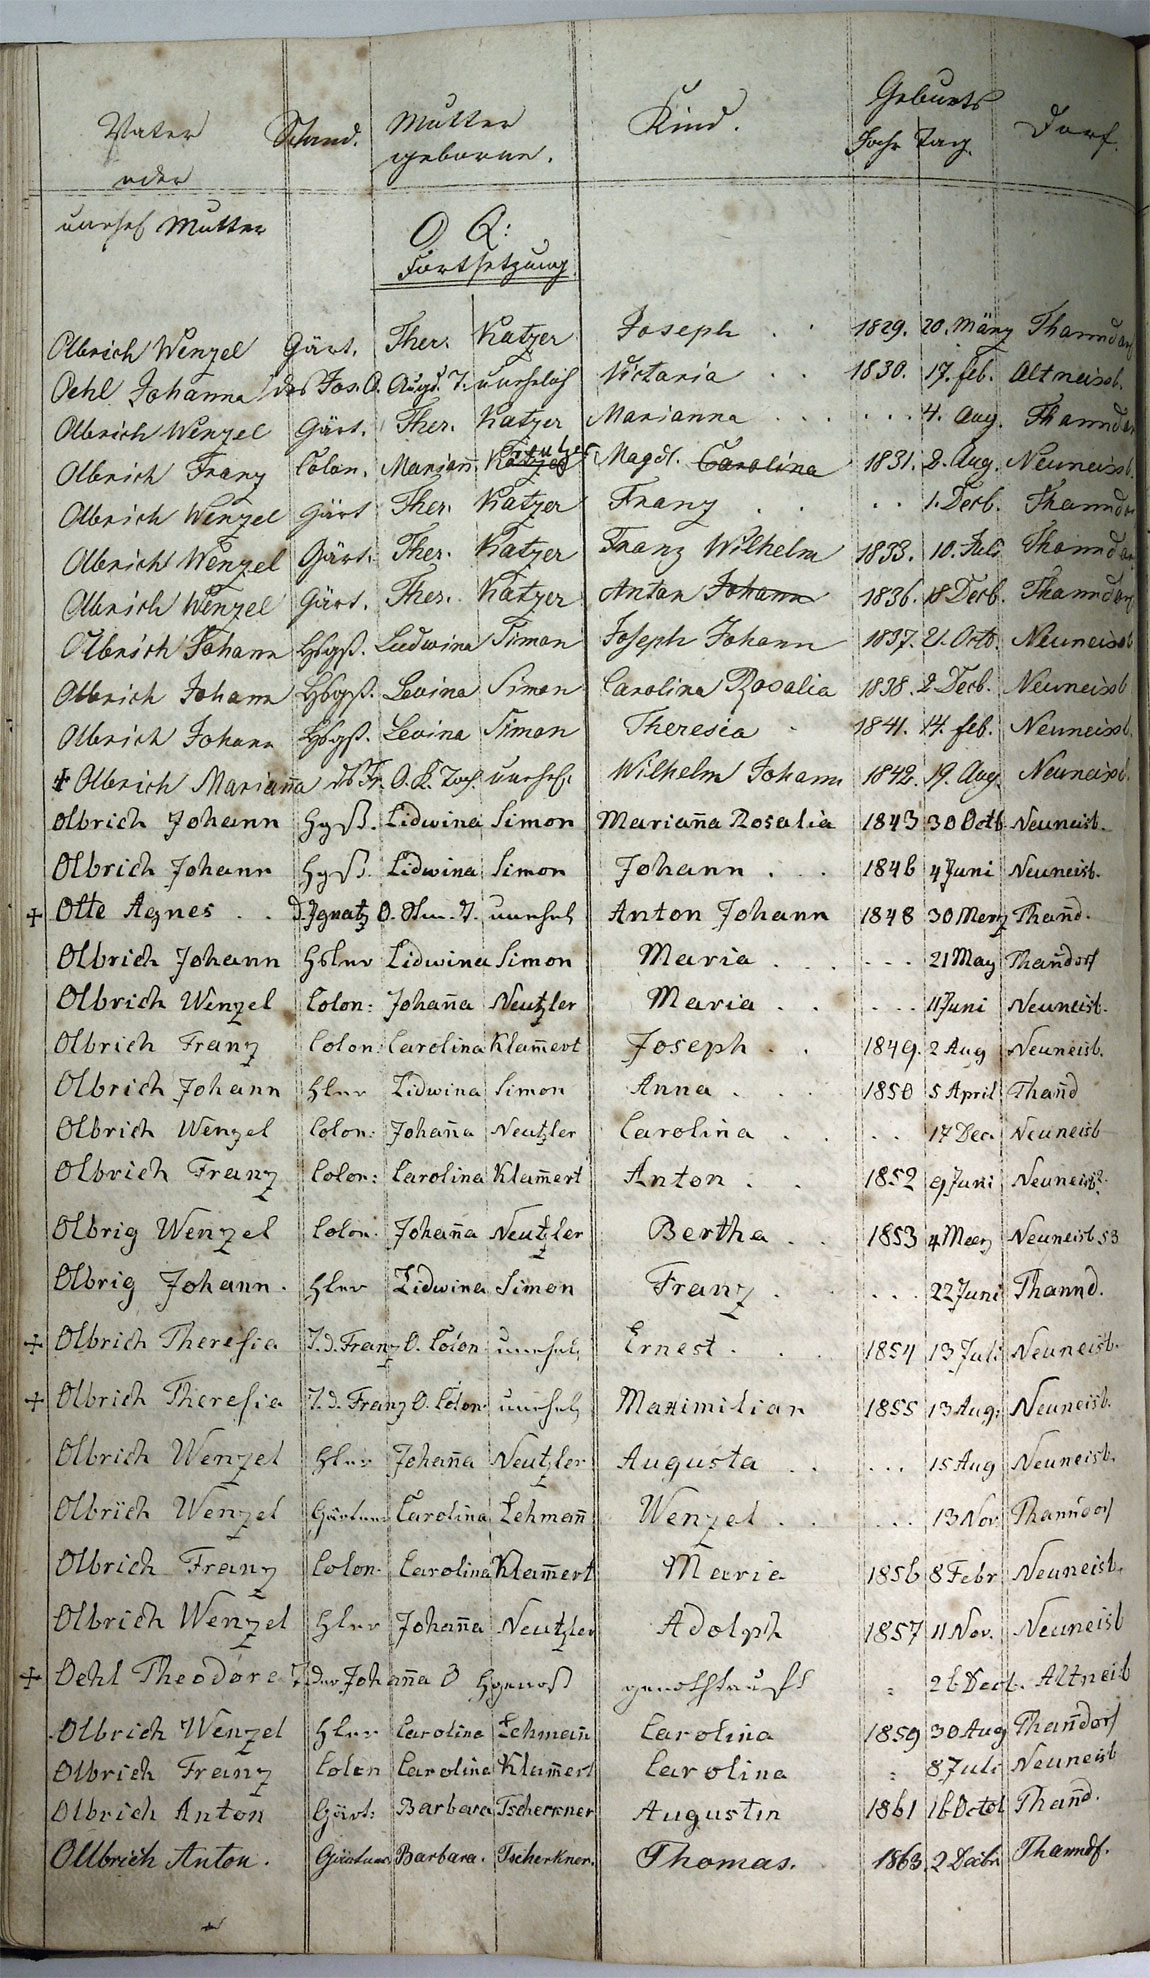 Vater Stand. Mutter Kind. Geburts Dorf.
oder geborne. Jahr Tag.
unehel Mutter O Q:
Fortsetzung.
Olbrich Wenzel Gärt. Ther. Katzer Joseph . . 1829. 20. März Thanndorf
Oehl Johanna des Jos. O. Augs. T. unehelich Victoria . . 1830. 17. feb. Altneissb.
Olbrich Wenzel Gärt. Ther. Katzer Marianna . . . . . . 4. Aug. Thanndor
Olbrich Franz Colon. Mariañ. Katzer Magdl. Carolina 1831. 2. Aug. Neuneissb.
Olbrich Wenzel Gärt Ther. Katzer Franz . . . . 1. Decb. Thanndor
Olbrich Wenzel Gärt. Ther. Katzer Franz Wilhelm 1833. 10. Juli Thanndor
Olbrich Wenzel Gärt. Ther. Katzer Anton Johann 1836. 18 Decb. Thanndorf
Olbrich Johann Hbgß. Ludwina Simon Joseph Johann 1837. 21. Octb. Neuneissb
Olbrich Johann Hbgß. Levina Simon Carolina Rosalia 1838. 2 Decb. Neuneissb
Olbrich Johann Hbgß. Levina Simon Theresia . 1841. 14. feb. Neuneissb.
+ Olbrich Mariaña ds Fr. O. K. Tof. unehel. Wilhelm Johann 1842. 19. Aug. Neuneissb.
Olbrich Johann Hgß. Lidwina Simon Mariaña Rosalia 1843 30 Octb Neuneisb.
Olbrich Johann Hgß. Lidwina Simon Johann . . . 1846 4 Juni Neuneisb.
+ Otte Agnes . . d. Ignatz O. T. unehel Anton Johann 1848 30 Merz Thañd.
Olbrich Johann Hsler Lidwina Simon Maria . . . . . . 21 May Thañdorf
Olbrich Wenzel Colon: Johaña Neutzler Maria . . . . . 11 Juni Neuneisb.
Olbrich Franz Colon: Carolina Klam̃ert Joseph . . 1849. 2 Aug Neuneisb.
Olbrich Johann Hler Lidwina Simon Anna . . . 1850 5 April Thañd
Olbrich Wenzel Colon: Johaña Neutzler Carolina . . . . 17 Dec. Neuneisb
Olbrich Franz Colon: Carolina Klam̃ert Anton . . 1852 9 Juni Neuneisb.
Olbrig Wenzel Colon. Johaña Neutzler Bertha . . 1853 4 Merz Neuneisb 53
Olbrig Johann. Hler Lidwina Simon Franz . . . . . 22 Juni Thannd.
+ Olbrich Theresia T. d. Franz O. Colon unehel Ernest . . . 1854 13 Juli Neuneisb.
+ Olbrich Theresia T. d. Franz O. Colon unehel Maximilian 1855 13 Aug: Neuneisb.
Olbrich Wenzel Hler Johaña Neutzler Augusta . . . . . 15 Aug Neuneisb.
Olbrich Wenzel Gärtner Carolina Lehmañ Wenzel . . . . . 13 Nov. Thanndorf
Olbrich Franz Colon. Carolina Klam̃ert Maria 1856 8 Febr Neuneisb.
Olbrich Wenzel Hler Johaña Neutzler Adolph 1857 11 Nov. Neuneisb
+ Oehl Theodore T der Johaña O Hgenoß genothtauft : 26 Decb. Altneisb
Olbrich Wenzel Hler Carolina Lehmañ Carolina 1859 30 Aug Thañdorf
Olbrich Franz Colon Carolina Klam̃ert Carolina : 8 Juli Neuneisb
Olbrich Anton Gärt: Barbara Tscherkner Augustin 1861 16 Octob Thañd.
Ollbrich Anton. Gärtner Barbara. Tscherkner. Thomas. 1863. 2 Decbr Thanndf.